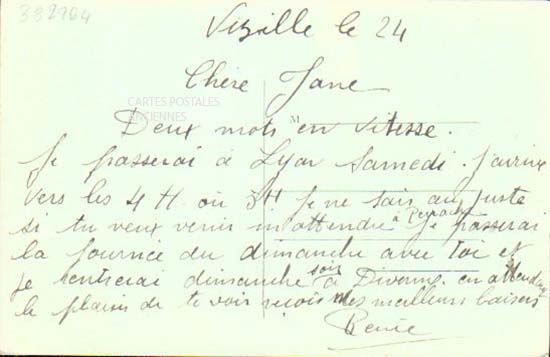 382764
Vizille le 24
Chère Jane
CARTES POSTALES
ANCIENNES
M
Deux mots en vitesse.
Je passerai à Lyon Samedi. J'arrive
vers les 4 H ou 3H je ne sais au juste
si tu veux venir m'attendre à Perrache je passerai
la journée du dimanche avec toi et
je rentrerai dimanche soir à Divonne. en attendant
le plaisir de te voir reçois mes meilleurs baisers
Renée